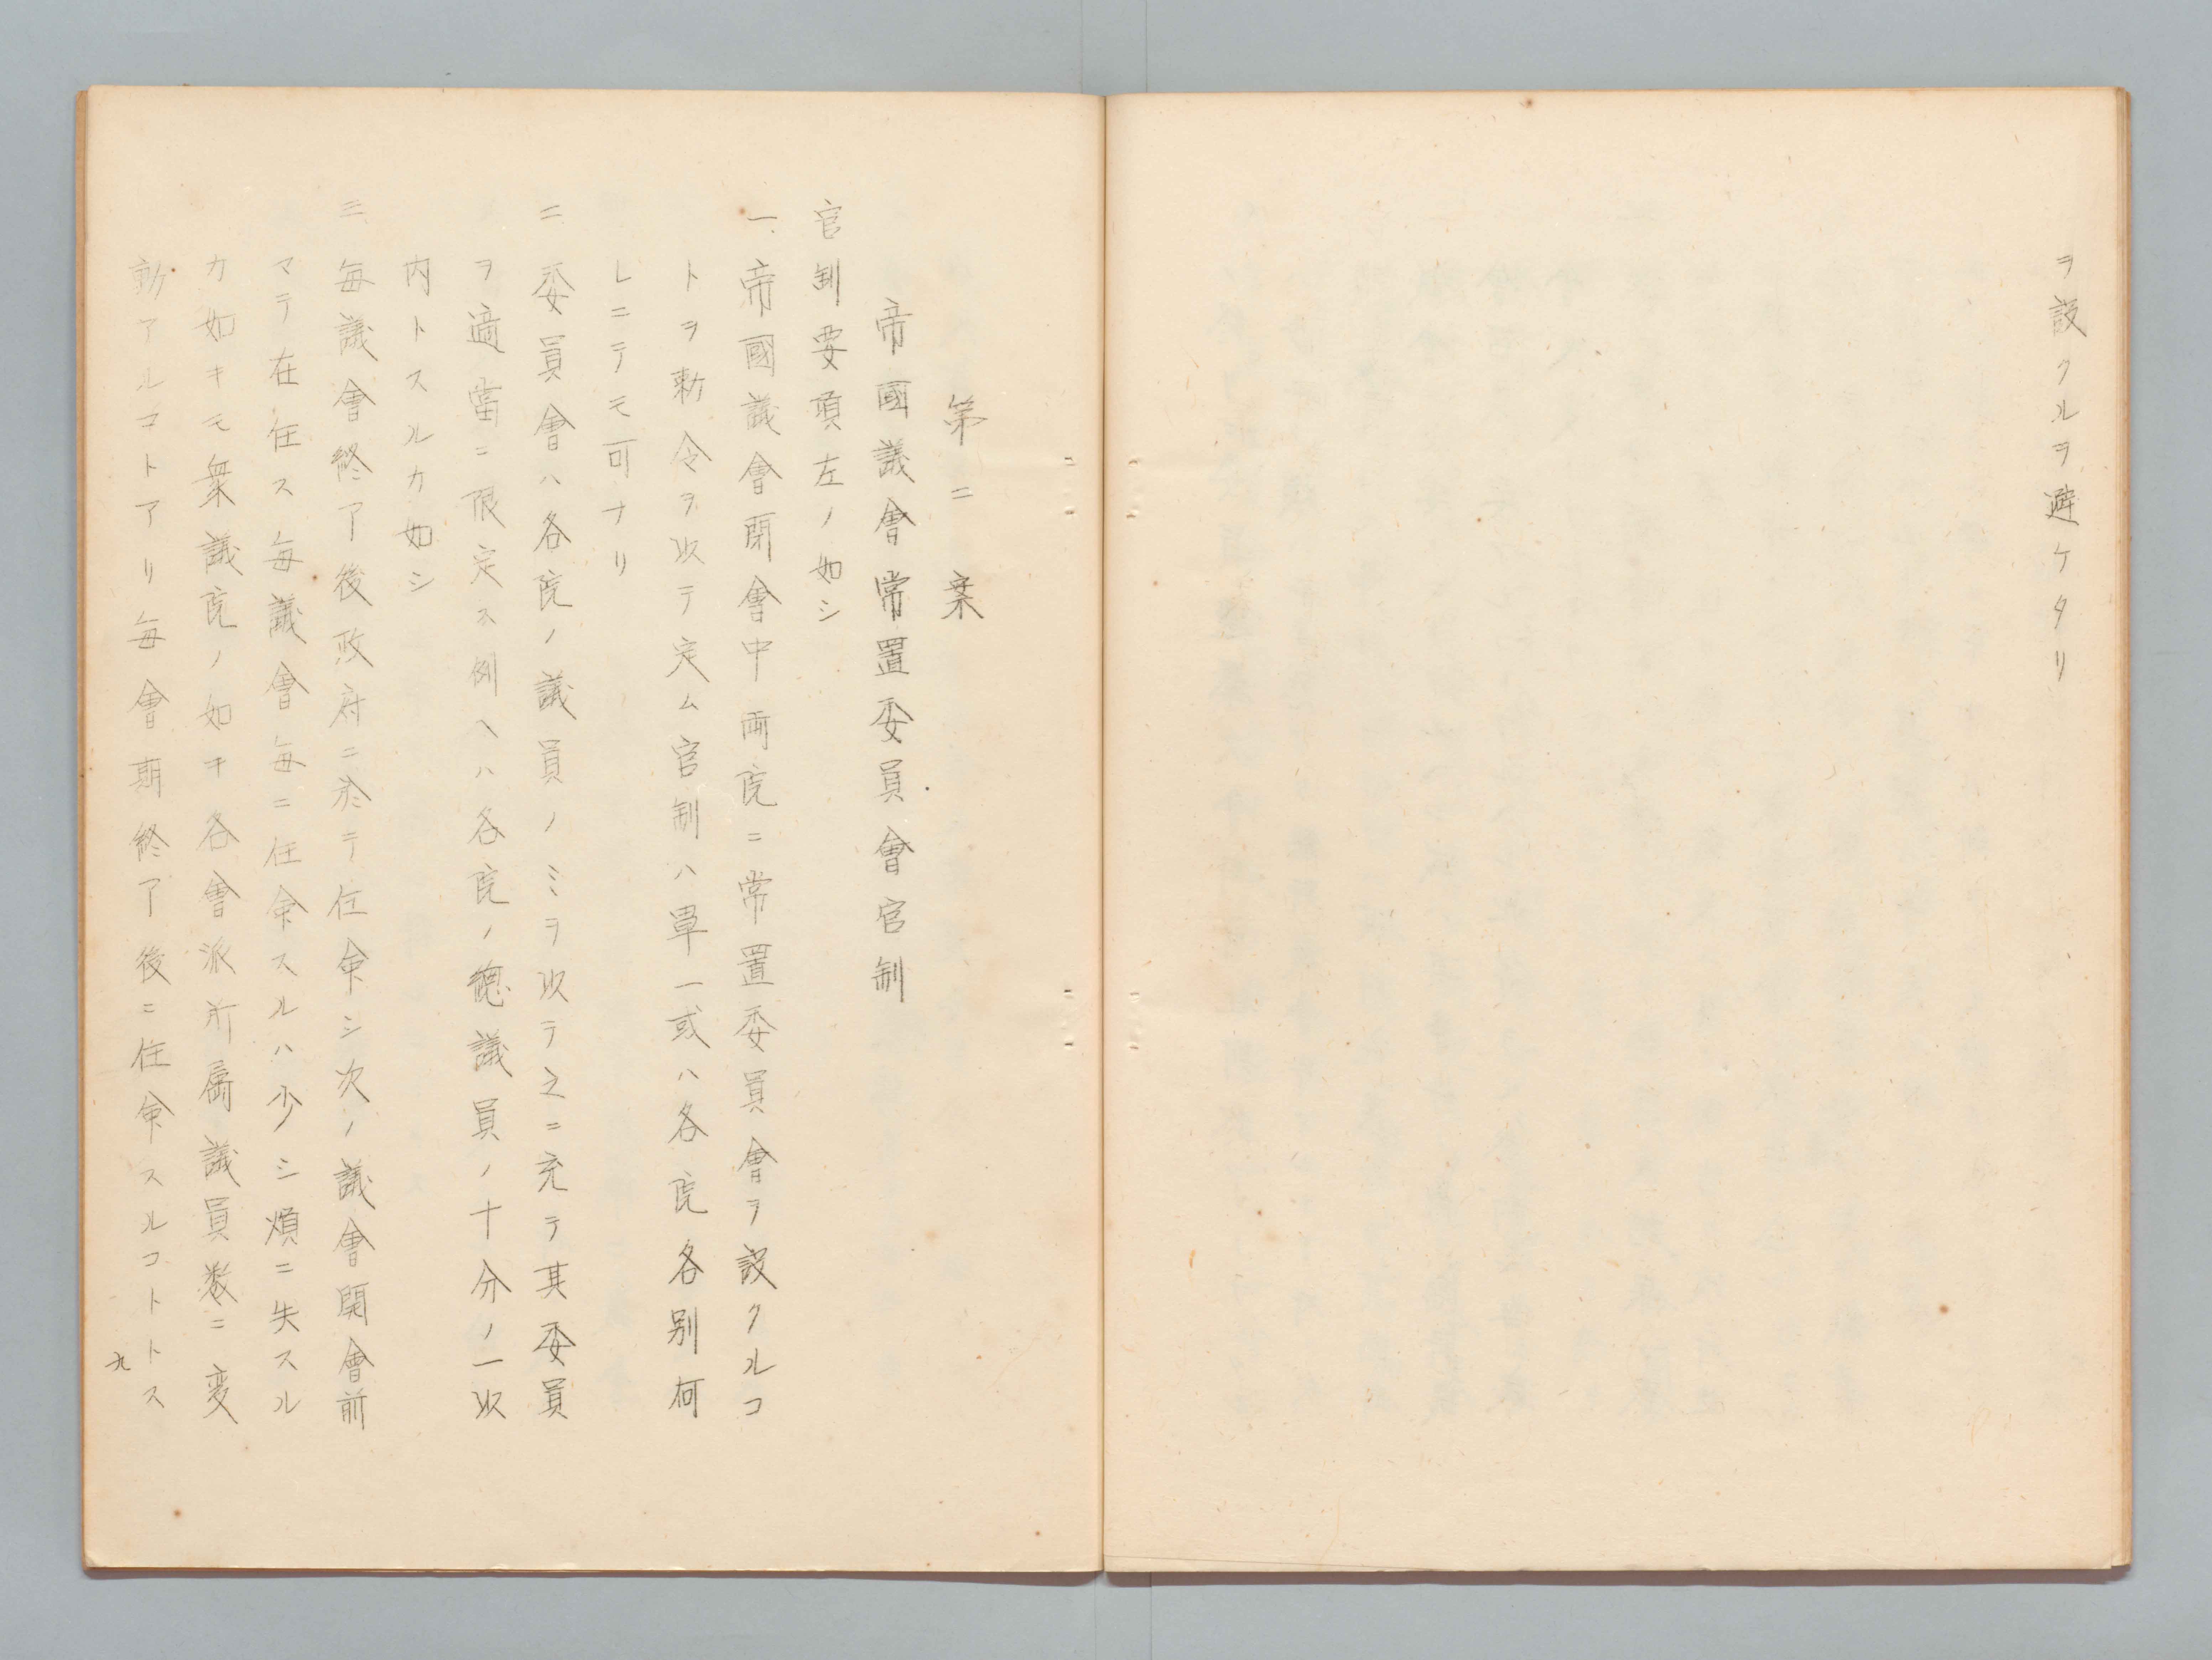 ヲ設クルヲ避ケタリ
第二案
帝國議會常置委員會官制
官制要項左ノ如シ
一、帝國議會閉會中兩院ニ常置委員會ヲ設クルコ
トヲ勅令ヲ以テ定ム官制ハ單一或ハ各院各別何
レニテモ可ナリ
二 委員會ハ各院ノ議員ノミヲ以テ之ニ充テ其委員
ヲ適當ニ限定ス例ヘハ各院ノ總議員ノ十分ノ一以
内トスルカ如シ
三 每議會終了後政府ニ於テ任命シ次ノ議會開會前
マテ在任ス每議會每ニ任命スルハ少シ煩ニ失スル
カ如キモ衆議院ノ如キ各會派所屬議員数ニ変
動アルコトアリ每會期終了後ニ任命スルコトトス
九